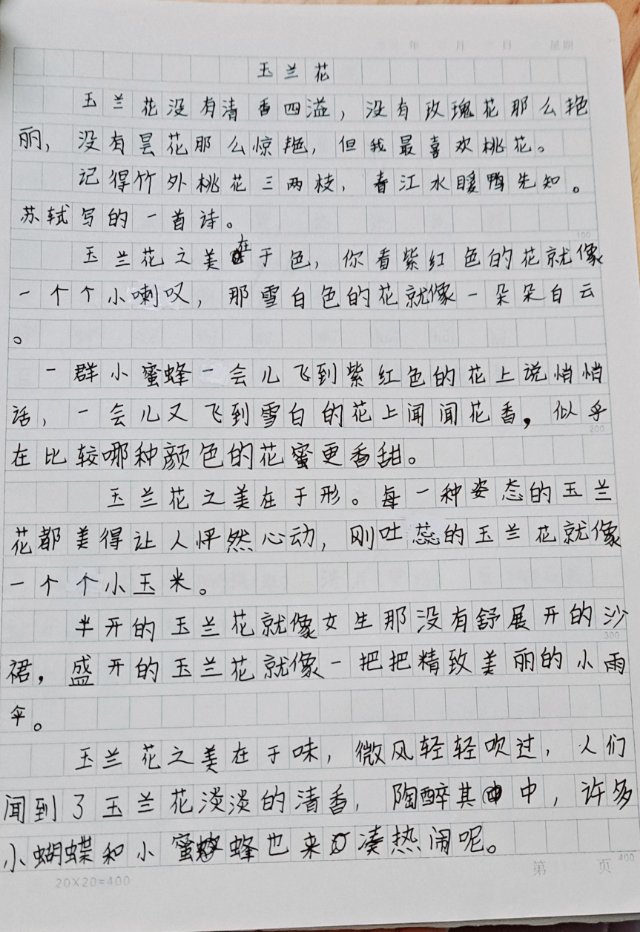 年 月 日 星期
玉兰花
玉兰花没有清香四溢，没有玫瑰花那么艳
丽，没有昙花那么惊艳，但我最喜欢桃花。
记得竹外桃花三两枝，春江水暖鸭先知。
苏轼写的一首诗。
100
玉兰花之美在于色，你看紫红色的花就像
一个个小喇叭，那雪白色的花就像一朵朵白云
。
一群小蜜蜂一会儿飞到紫红色的花上说悄悄
话，一会儿又飞到雪白的花上闻闻花香，似乎
200
在比较哪种颜色的花蜜更香甜。
玉兰花之美在于形。每一种姿态的玉兰
花都美得让人怦然心动，刚吐蕊的玉兰花就像
一个个小玉米。
半开的玉兰花就像女生那没有舒展开的沙
300
裙，盛开的玉兰花就像一把把精致美丽的小雨
伞。
玉兰花之美在于味，微风轻轻吹过，人们
闻到了玉兰花淡淡的清香，陶醉其中，许多
小蝴蝶和小蜜蜂也来凑热闹呢。
400
20×20=400
第 页